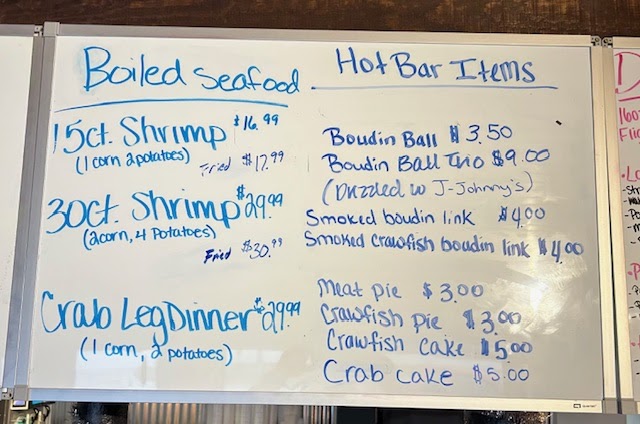 Boiled Seafood
15ct. Shrimp $16.99
(1 corn 2 potatoes)
Fried $17.99
30ct. Shrimp $29.99
(2 corn, 4 Potatoes)
Fried $30.99
Crab Leg Dinner $29.99
(1 corn, 2 potatoes)
Hot Bar Items
Boudin Ball $3.50
Boudin Ball Trio $9.00
(Drizzled w J-Johnny's)
Smoked boudin link $4.00
Smoked Crawfish boudin link $4.00
Meat pie $3.00
Crawfish pie $3.00
Crawfish cake $5.00
Crab cake $5.00